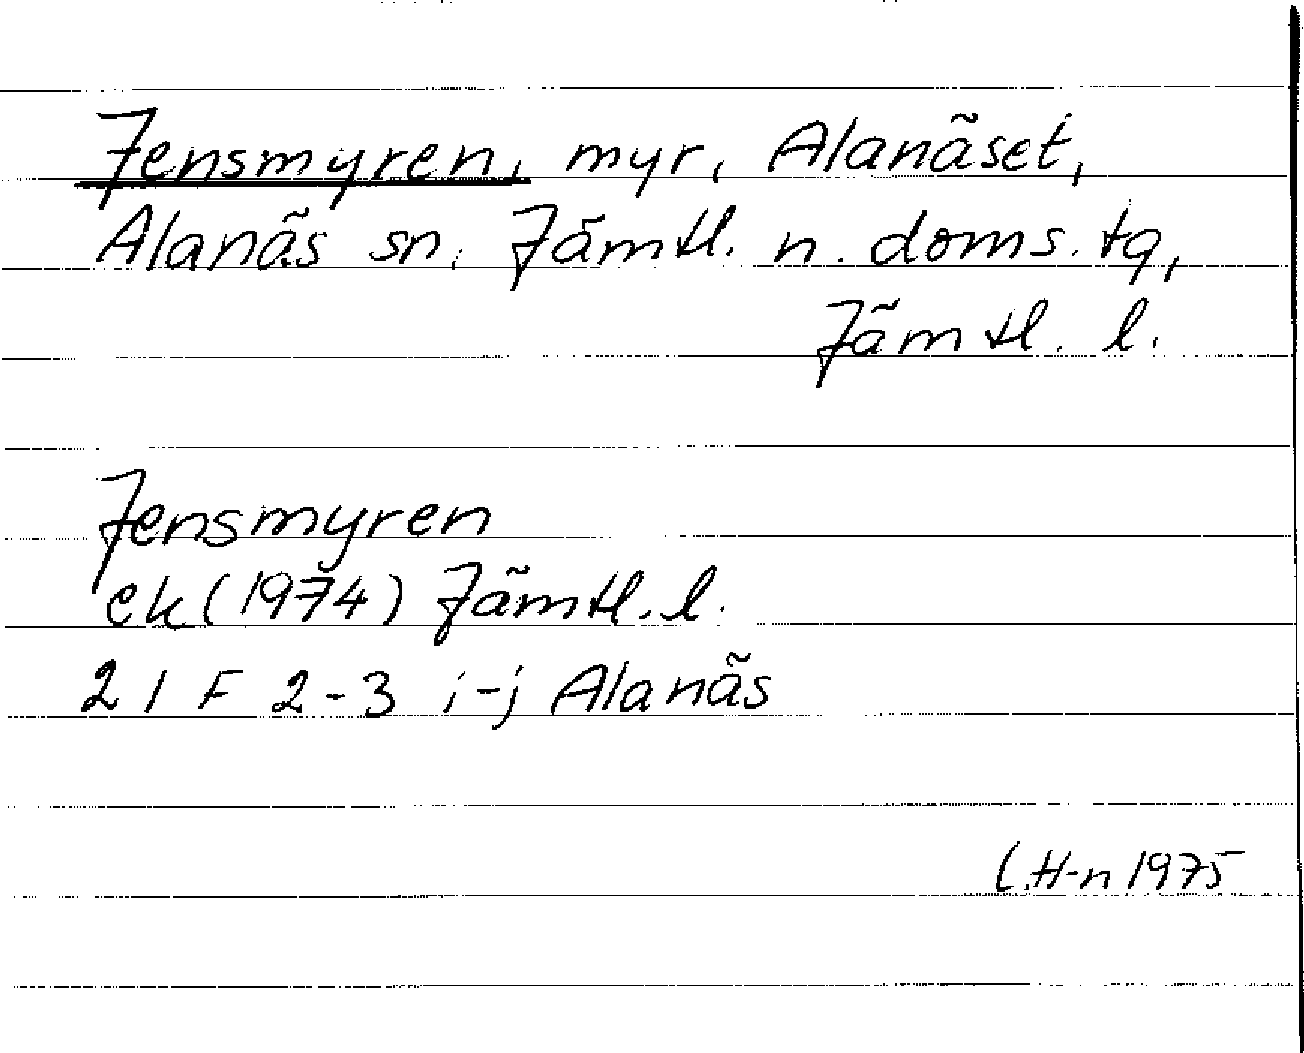 Jensmyren, myr, Alanäset,
Alanäs sn. Jämtl. n. doms. tg,
Jämtl. l.
Jensmyren
ek (1974) Jämtl. l.
21 F 2-3 i-j Alanäs
L.H-n 1975